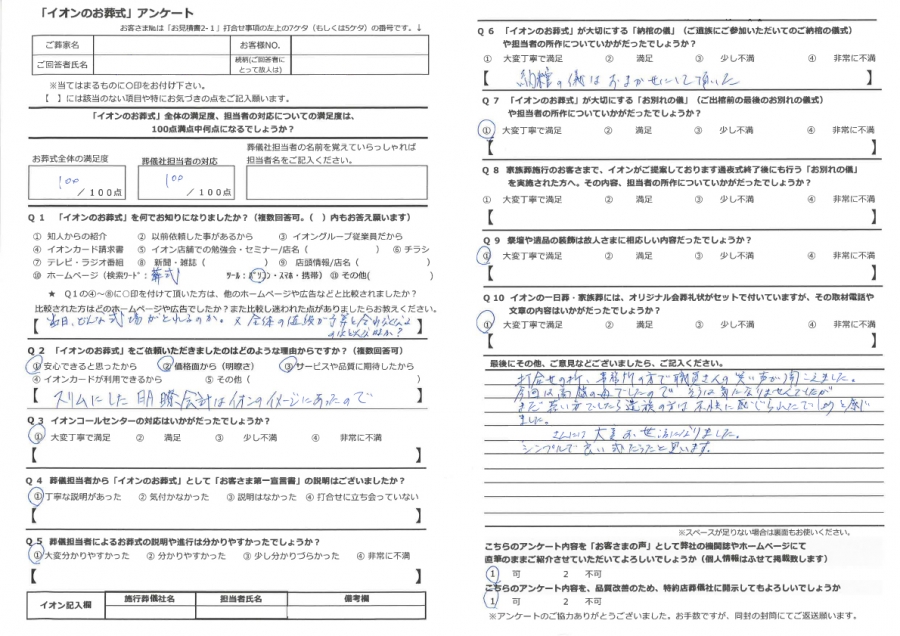 「イオンのお葬式」アンケート
お客さま№は「お見積書2-1」打合せ事項の左上の7ケタ（もしくは5ケタ）の番号です。↓
ご葬家名
お客様NO.
ご回答者氏名
続柄(ご回答者に
とって故人は)
※当てはまるものに〇印をお付け下さい。
【　】には該当のない項目や特にお気づきの点をご記入願います。
「イオンのお葬式」全体の満足度、担当者の対応についての満足度は、
100点満点中何点になるでしょうか？
お葬式全体の満足度
葬儀社担当者の対応
葬儀社担当者の名前を覚えていらっしゃれば
担当者名をご記入ください。
100 ／100点
100 ／100点
Q 1 「イオンのお葬式」を何でお知りになりましたか？（複数回答可。（　）内もお答え願います）
① 知人からの紹介 ② 以前依頼した事があるから ③ イオングループ従業員だから
④ イオンカード請求書 ⑤ イオン店舗での勉強会・セミナー/店名（　） ⑥ チラシ
⑦ テレビ・ラジオ番組 ⑧ 新聞・雑誌（　） ⑨ 店頭情報/店名（　）
⑩ ホームページ（検索ﾜｰﾄﾞ：葬式 ﾂｰﾙ：ﾊﾟｿｺﾝ・ｽﾏﾎ・携帯） ⑪ その他(　)
★ Q1の④～⑧に〇印を付けて頂いた方は、他のホームページや広告などと比較されましたか？
比較された方はどのホームページや広告でしたか？また比較し迷われた点がありましたらお教えください。
【 】
Q 2 「イオンのお葬式」をご依頼いただきましたのはどのような理由からですか？（複数回答可）
①安心できると思ったから ②価格面から（明瞭さ） ③サービスや品質に期待したから
④ イオンカードが利用できるから ⑤ その他（　）
【 スリムにした明瞭会計はイオンのイメージにあったので 】
Q 3 イオンコールセンターの対応はいかがだったでしょうか？
① 大変丁寧で満足 ② 満足 ③ 少し不満 ④ 非常に不満
【 】
Q 4 葬儀担当者から「イオンのお葬式」として「お客さま第一宣言書」の説明はございましたか？
①丁寧な説明があった ② 気付かなかった ③ 説明はなかった ④ 打合せに立ち会っていない
【 】
Q 5 葬儀担当者によるお葬式の説明や進行は分かりやすかったでしょうか？
①大変分かりやすかった ② 分かりやすかった ③ 少し分かりづらかった ④ 非常に不満
【 】
イオン記入欄
施行葬儀社名
担当者氏名
備考欄
Q 6 「イオンのお葬式」が大切にする「納棺の儀」（ご遺族にご参加いただいてのご納棺の儀式）
や担当者の所作についていかがだったでしょうか？
① 大変丁寧で満足 ② 満足 ③ 少し不満 ④ 非常に不満
【 納棺の儀はおまかせにして頂いた 】
Q 7 「イオンのお葬式」が大切にする「お別れの儀」（ご出棺前の最後のお別れの儀式）
や担当者の所作についていかがだったでしょうか？
① 大変丁寧で満足 ② 満足 ③ 少し不満 ④ 非常に不満
【 】
Q 8 家族葬施行のお客さまで、イオンがご提案しております通夜式終了後にも行う「お別れの儀」
を実施された方へ。その内容、担当者の所作についていかがだったでしょうか？
① 大変丁寧で満足 ② 満足 ③ 少し不満 ④ 非常に不満
【 】
Q 9 祭壇や遺品の装飾は故人さまに相応しい内容だったでしょうか？
① 大変丁寧で満足 ② 満足 ③ 少し不満 ④ 非常に不満
【 】
Q 10 イオンの一日葬・家族葬には、オリジナル会葬礼状がセットで付いていますが、その取材電話や
文章の内容はいかがだったでしょうか？
① 大変丁寧で満足 ② 満足 ③ 少し不満 ④ 非常に不満
【 】
最後にその他、ご意見などございましたら、ご記入ください。
打合せの折、事務所の方で職員さんの笑い声が聞こえました。
今回は高齢の母でしたので
ました。
大変お世話になりました。
シンプルで良い式だったと思います。
※スペースが足りない場合は裏面もお使いください。
こちらのアンケート内容を「お客さまの声」として弊社の機関誌やホームページにて
直筆のままご紹介させていただいてよろしいでしょうか（個人情報はふせて掲載致します）
1 可 2 不可
こちらのアンケート内容を、品質改善のため、特約店葬儀社に開示してもよろしいでしょうか
1 可 2 不可
※アンケートのご協力ありがとうございました。お手数ですが、同封の封筒にてご返送願います。